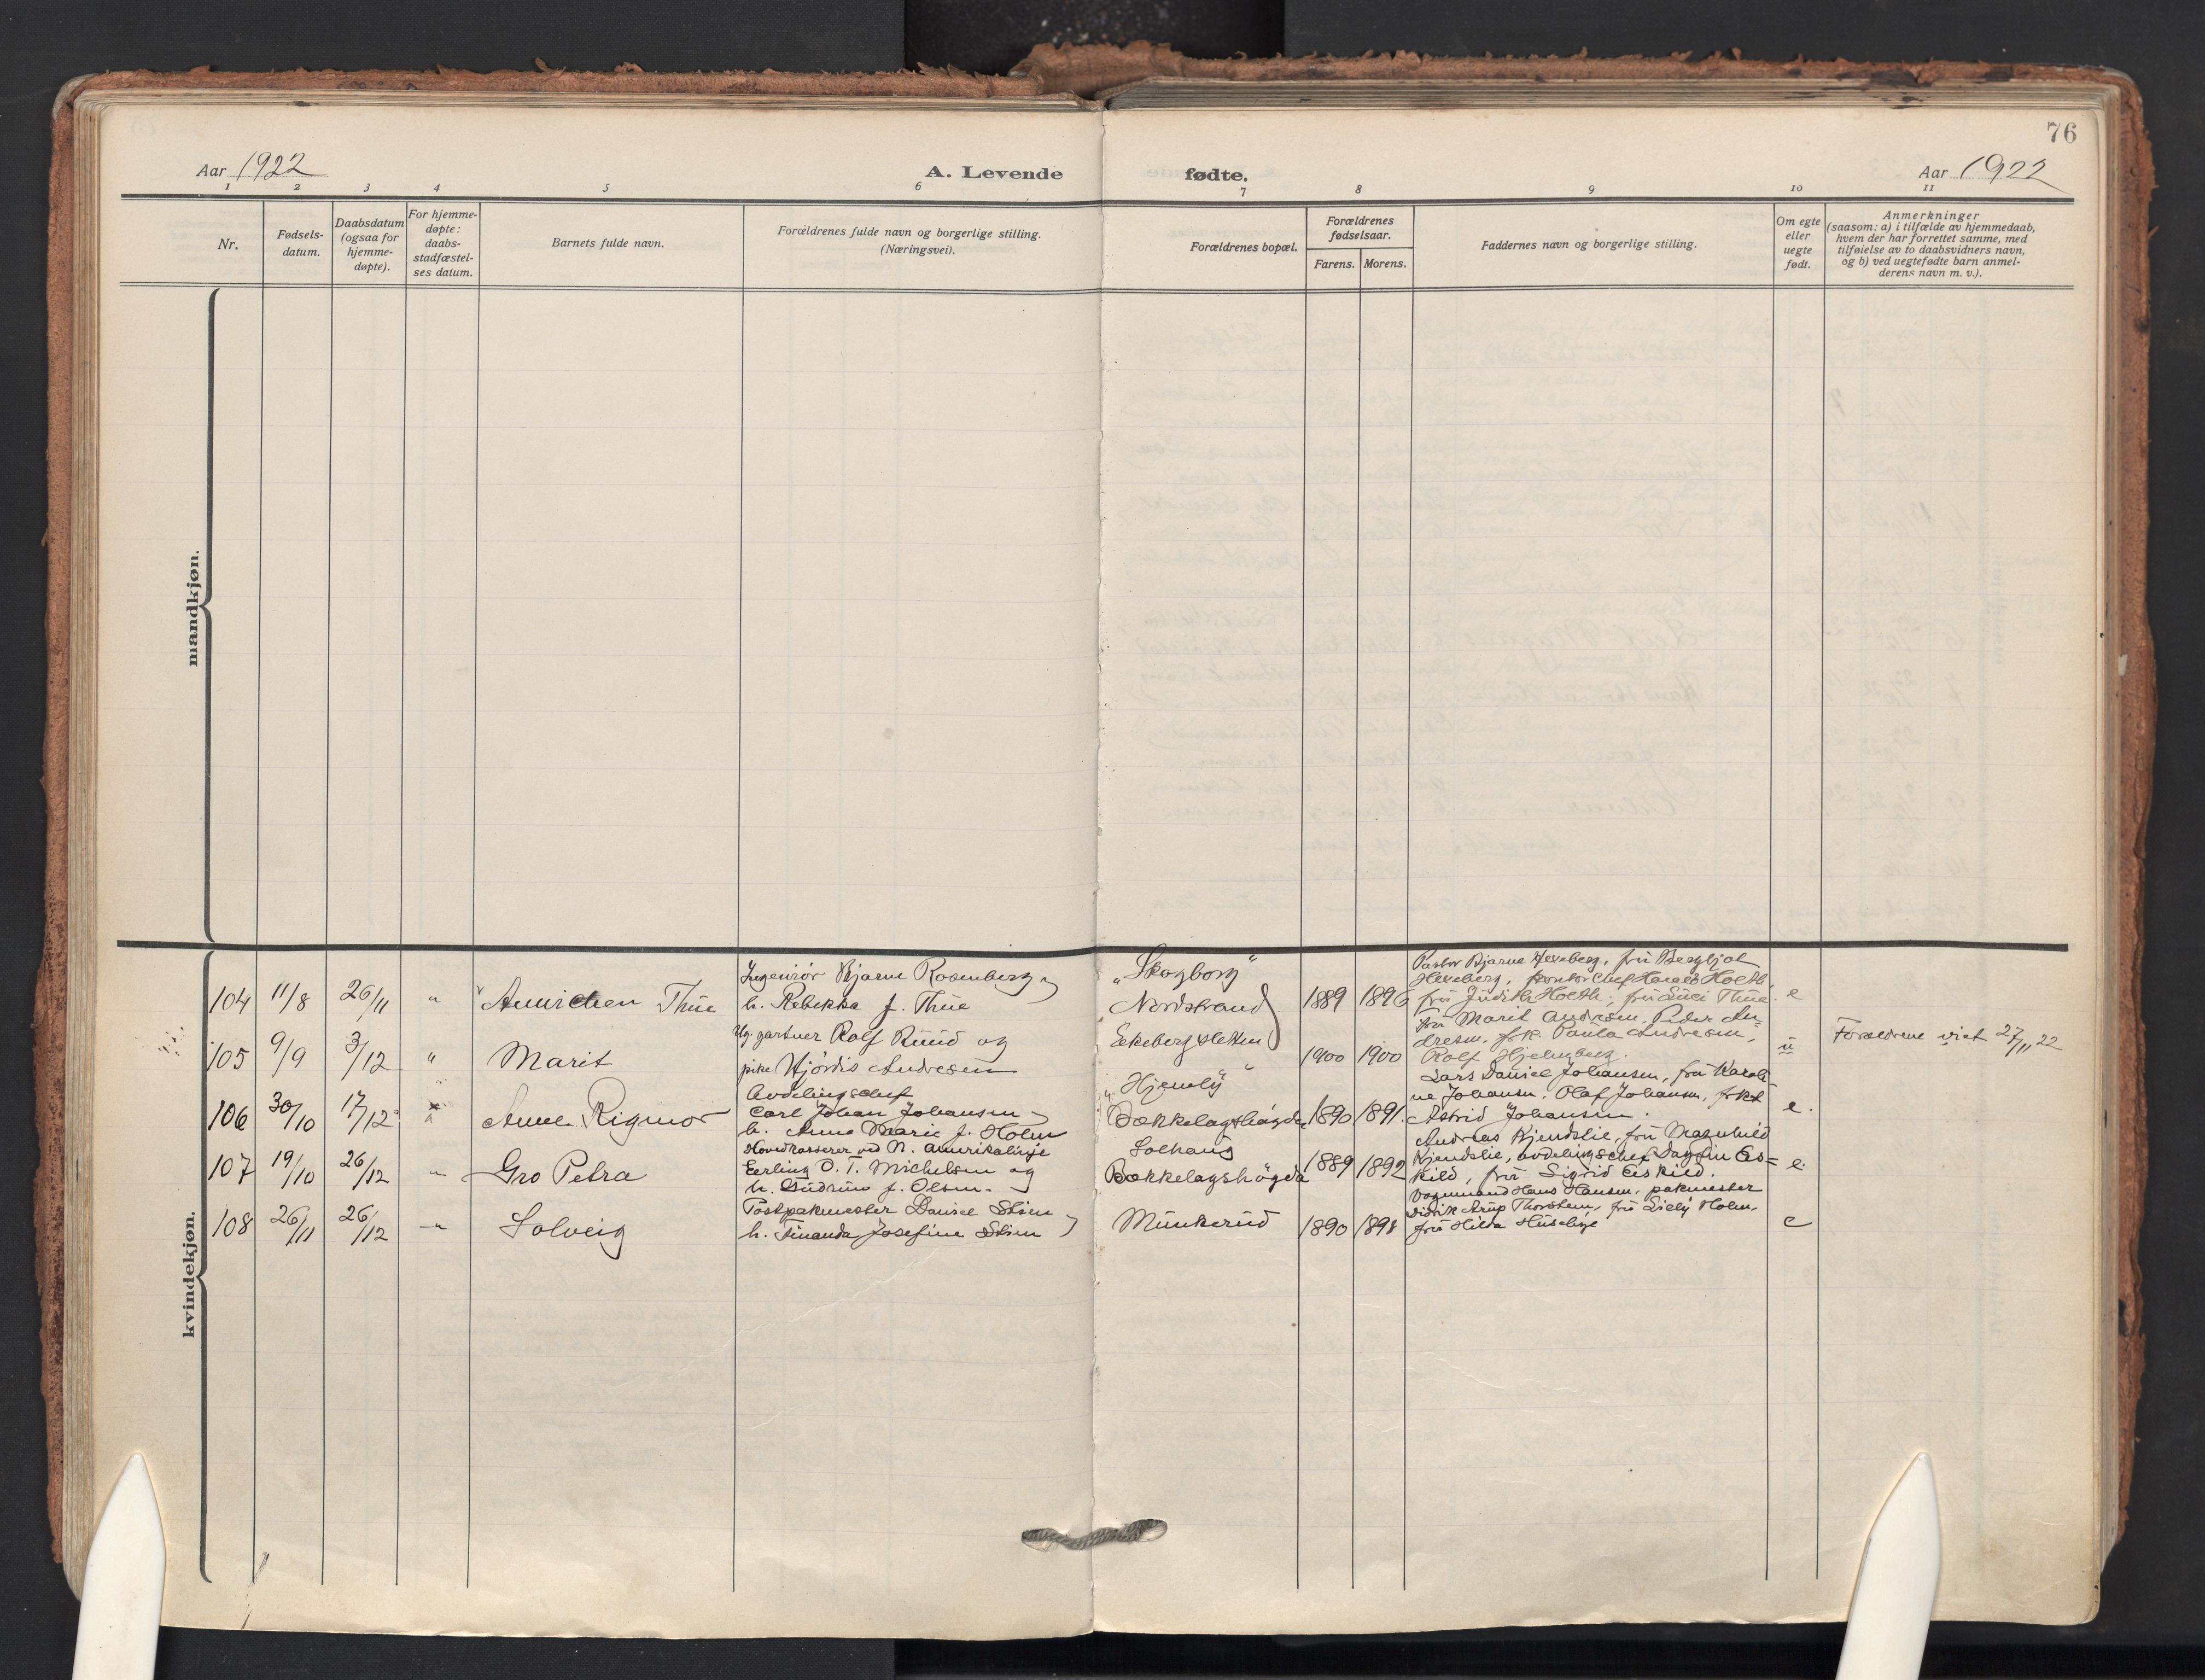 76
Aar 1922
A. Levende
fødte.
Aar 1922
1 2 3 4 5 6 7 8 9 10 11
Nr.
Fødsels-
datum.
Daabsdatum
(ogsaa for
hjemme-
døpte).
For hjemme-
døpte:
daabs-
stadfæstel-
ses datum.
Barnets fulde navn.
Forældrenes fulde navn og borgerlige stilling.
(Næringsvei).
Forældrenes bopæl.
Forældrenes
fødselsaar.
Farens. Morens.
Faddernes navn og borgerlige stilling.
Om egte
eller
uegte
født.
Anmerkninger
(saasom: a) i tilfælde av hjemmedaab,
hvem der har forrettet samme, med
tilføielse av to daabsvidners navn,
og b) ved uegtefødte barn anmel-
derens navn m. v.).
mandkjøn.
kvindekjøn.
104 11/8 26/11 " Thue
Ingeniør Bjarne Rosenberg
h. Rebekka f. Thue
"Skogborg"
Nordstrand
1889 1896
Pastor Bjarne Hexeberg, frü Bergljot
Hexeberg, kontorchef Harald Hoeth,
frü Judith Hoeth, frü Thue.
e
105 9/9 3/12 " Marit
Ug. gartner Rolf Ruud og
pike Hjördis Andresen
Ekebergsletten
1900 1900
frü Marit Andresen, Peder An=
dresen, frk. Paula Andresen,
Rolf Hjelmberg.
u
Forældrene viet 27/11 22
106 30/10 17/12 " Anne Rigmor
Avdelingschef
Carl Johan Johansen
h. Anna Marie f. Holm
"Hjemly"
Bækkelagshøgda
1890 1891.
Lars Daniel Johansen, frü Karoli
ne Johansen, Olaf Johansen, frk
Astrid Johansen.
e.
107 19/10 26/12 " Gro Petra
Hovedkasserer ved N. Amerikalinje
Erling O. T. Michelsen og
h. Gudrun f. Olsen.
Solhaug
Bækkelagshøgda
1889 1892
Andreas Kjendslie, frü Magnhild
Kjendslie, avdelingschef Dagfin Es=
kild, frü Sigrid Eskild.
e.
108 26/11 26/12 " Solveig
Postpakmester Daniel Stien
h. Finanda Josefine Stien
Munkerud
1890 1898
Vognmand Hans Hansen, pakmester
Didrik Arup Thorstem, frü Holm,
frü Hilda
e